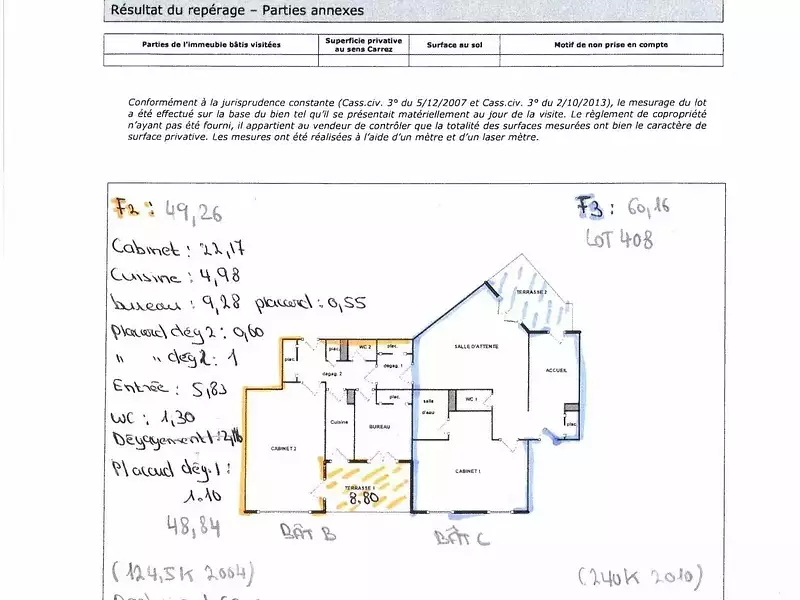 Résultat du repérage – Parties annexes
Parties de l'immeuble bâtis visitées
Superficie privative au sens Carrez
Surface au sol
Motif de non prise en compte
Conformément à la jurisprudence constante (Cass.civ. 3° du 5/12/2007 et Cass.civ. 3° du 2/10/2013), le mesurage du lot
a été effectué sur la base du bien tel qu'il se présentait matériellement au jour de la visite. Le règlement de copropriété
n'ayant pas été fourni, il appartient au vendeur de contrôler que la totalité des surfaces mesurées ont bien le caractère de
surface privative. Les mesures ont été réalisées à l'aide d'un mètre et d'un laser mètre.
F2 : 49,26
F3 : 60,16
LOT 408
Cabinet : 22,17
Cuisine : 4,98
bureau : 9,28 placard : 0,55
Placard dég 2 : 0,60
" " dég 2 : 1
Entrée : 5,83
WC : 1,30
Dégagement 1 :
Placard dég. 1 :
1.10
48,84
(124,5K 2004)
(240K 2010)
TERRASSE 2
SALLE D'ATTENTE
ACCUEIL
plac.
WC 2
plac.
plac.
degag. 2
degag. 1
plac.
salle d'eau
WC 1
plac.
Cuisine
BUREAU
CABINET 2
CABINET 1
TERRASSE 1
8.80
BÂT B
BÂT C